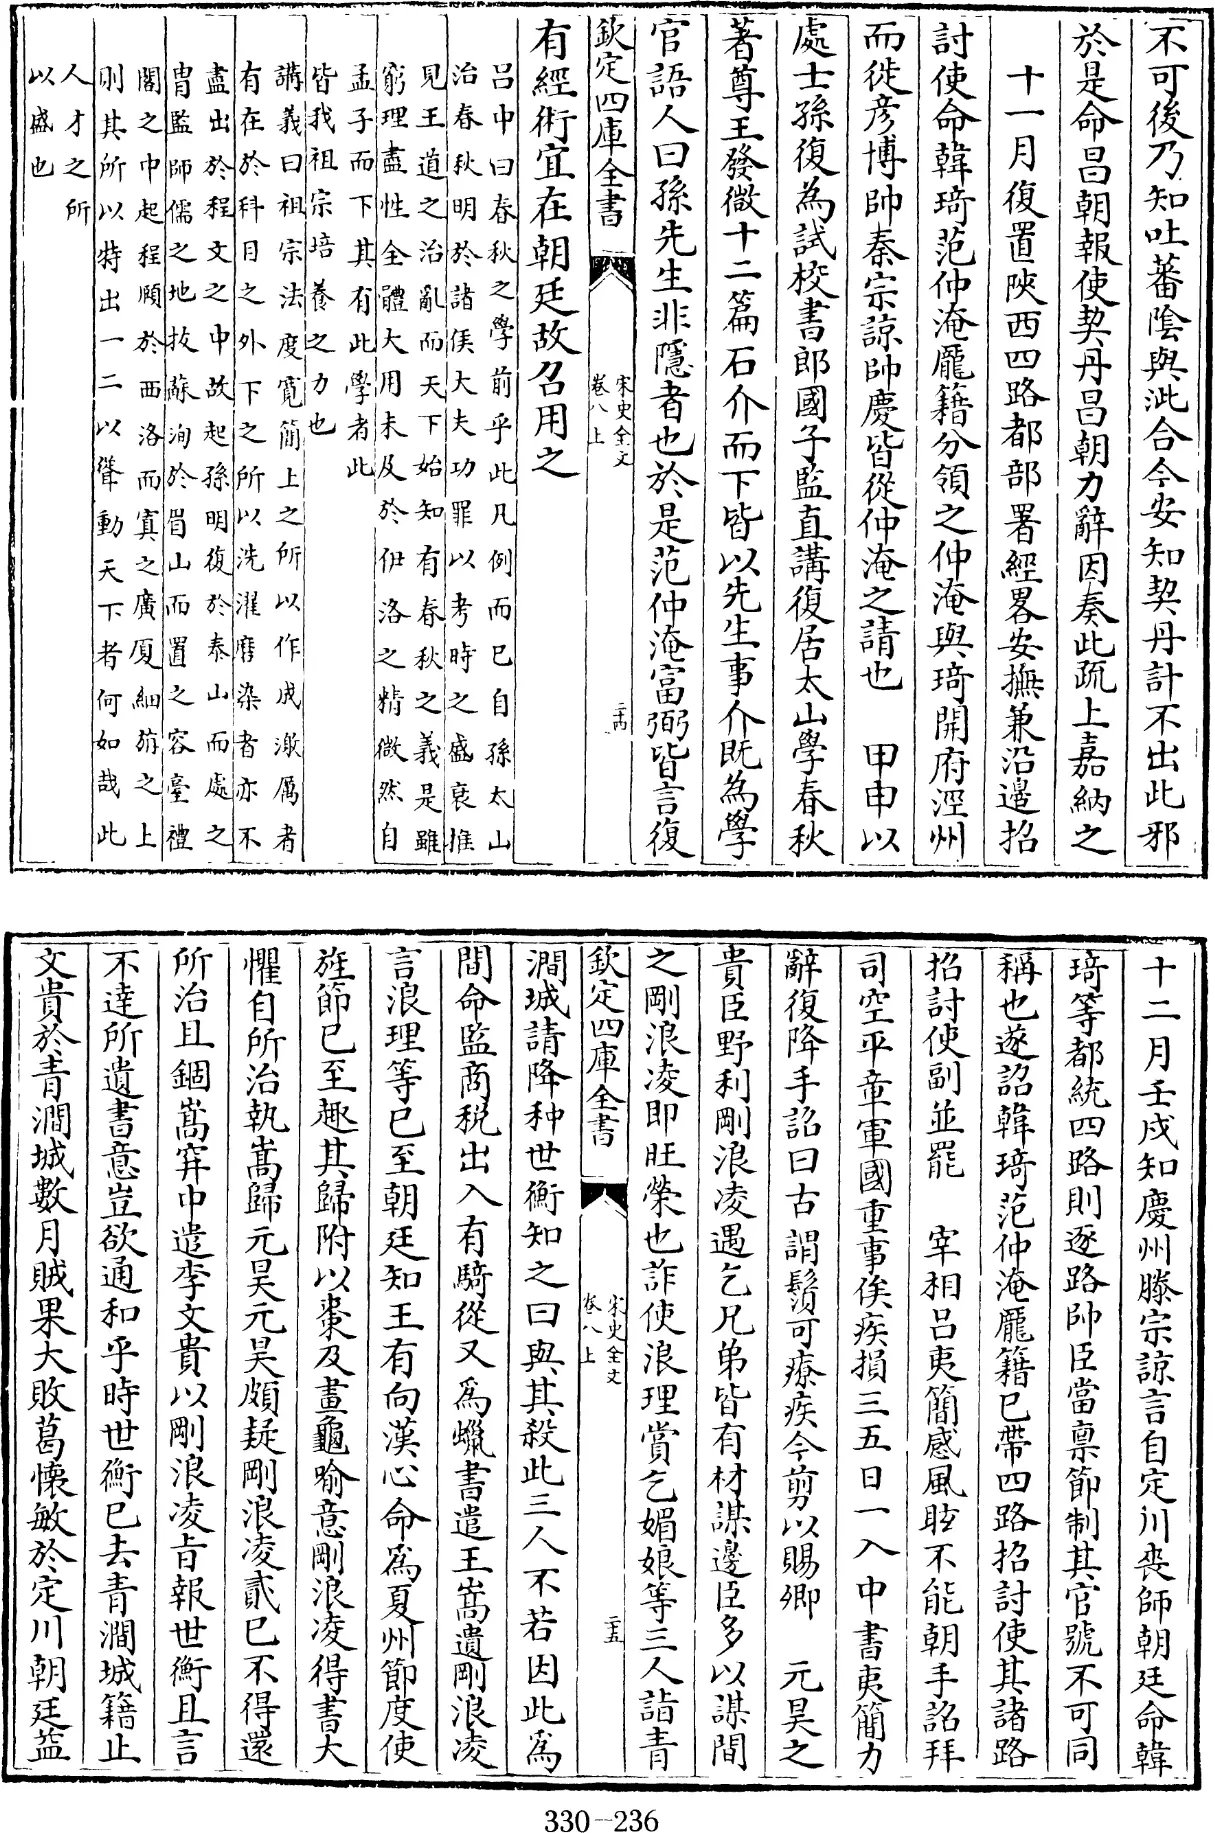 不可後乃知吐蕃陰與泚合今安知契丹計不出此邪
於是命昌朝報使契丹昌朝力辭因奏此疏上嘉納之
十一月復置陜西四路都部署經畧安撫兼沿邊招
討使命韓琦范仲淹龐籍分領之仲淹與琦開府涇州
而徙彦博帥秦宗諒帥慶皆從仲淹之請也　甲申以
處士孫復為試校書郎國子監直講復居太山學春秋
著尊王發微十二篇石介而下皆以先生事介既為學
官語人曰孫先生非隱者也於是范仲淹富弼皆言復
欽定四庫全書
宋史全文
卷八上
二十四
有經術宜在朝廷故召用之
呂中曰春秋之學前乎此凡例而已自孫太山
治春秋明於諸侯大夫功罪以考時之盛衰推
見王道之治亂而天下始知有春秋之義是雖
窮理盡性全體大用未及於伊洛之精微然自
孟子而下其有此學者此
皆我祖宗培養之力也
講義曰祖宗法度寛簡上之所以作成激厲者
有在於科目之外下之所以洗濯磨染者亦不
盡出於程文之中故起孫明復於泰山而處之
胄監師儒之地拔蘇洵於眉山而置之容臺禮
閣之中起程頤於西洛而寘之廣厦細旃之上
則其所以特出一二以聳動天下者何如哉此
人才之所
以盛也
十二月壬戌知慶州滕宗諒言自定川喪師朝廷命韓
琦等都統四路則逐路帥臣當禀節制其官號不可同
稱也遂詔韓琦范仲淹龐籍已帶四路招討使其諸路
招討使副並罷　宰相呂夷簡感風眩不能朝手詔拜
司空平章軍國重事俟疾損三五日一入中書夷簡力
辭復降手詔曰古謂鬚可療疾今剪以賜卿　元昊之
貴臣野利剛浪凌遇乞兄弟皆有材謀邊臣多以謀間
之剛浪凌即旺榮也詐使浪理賞乞媚娘等三人詣青
欽定四庫全書
宋史全文
卷八上
二十五
澗城請降种世衡知之曰與其殺此三人不若因此為
間命監商税出入有騎從又為蠟書遣王嵩遺剛浪凌
言浪理等已至朝廷知王有向漢心命為夏州節度使
旌節已至趣其歸附以棗及畫龜喻意剛浪凌得書大
懼自所治執嵩歸元昊元昊頗疑剛浪凌貳已不得還
所治且錮嵩穽中遣李文貴以剛浪凌旨報世衡且言
不達所遺書意豈欲通和乎時世衡已去青澗城籍止
文貴於青澗城數月賊果大敗葛懐敏於定川朝廷益
330-236